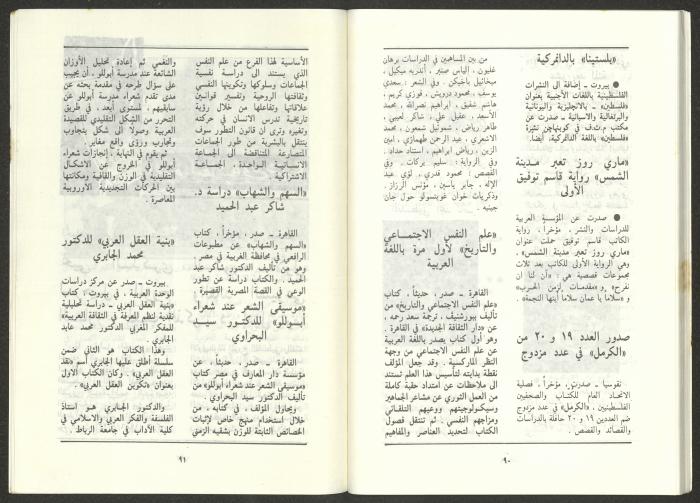 «بلستينا» بالدانمركية
● بيروت ـ إضافة الى النشرات
الفلسطينية باللغات الأجنبية بعنوان
«فلسطين» ـ بالانجليزية واليونانية
والبرتغالية والاسبانية ـ صدرت عن
مكتب م.ت.ف في كوبنهاجن نشرة
«فلسطين» باللغة الدانمركية، أيضاً.
«ماري روز تعبر مدينة
الشمس» رواية قاسم توفيق
الأولى
● صدرت عن المؤسسة العربية
للدراسات والنشر، مؤخراً، رواية
الكاتب قاسم توفيق حملت عنوان
«ماري روز تعبر مدينة الشمس».
وهي الرواية الأولى للكاتب بعد ثلاث
مجموعات قصصية هي: «آن لنا ان
نفرح» و«مقدمات لزمن الحرب»
و«سلاما يا عمان سلاما أيتها النجمة».
صدور العدد ١٩ و ٢٠ من
«الكرمل» في عدد مزدوج
نقوسيا ـ صدرت، مؤخراً، فصلية
الاتحاد العام للكتاب والصحفيين
الفلسطينيين، «الكرمل» في عدد مزدوج
ضم العددين ١٩ و ٢٠ حافلة بالدراسات
والقصائد والقصص.
من بين المساهمين في الدراسات برهان
غليون، الياس صنبر، أندريه ميكيل،
ميخائيل باختيكن. وفي الشعر: سعدي
يوسف، محمود درويش، فوزي كريم،
هاشم شفيق، ابراهيم نصرالله، محمد
الأسعد، عقيل علي، شاكر لعيبي،
طاهر رياض، شموئيل شمعون، محمد
الأشعري، عبد الرحمن طهمازي، امين
صالح، رياض ابراهيم، استناد حداد.
وفي الرواية: سليم بركات. وفي
القصص: محمود قدري، لؤي عبد
الإله، جابر ياسين، مؤنس الرزاز،
وذكريات خوان غويتسولو حول جان
جينيه.
«علم النفس الاجتماعي
والتأريخ» لأول مرة باللغة
العربية
القاهرة ـ صدر، حديثاً، كتاب
«علم النفس الاجتماعي والتاريخ» من
تأليف بيورشنيف، ترجمة سعد رحمه،
عن «دار الثقافة الجديدة» في القاهرة.
وهو أول كتاب يصدر باللغة العربية
عن علم النفس الاجتماعي من وجهة
النظر الماركسية. وقد جعل المؤلف
نقطة بدايته لتأسيس هذا العلم تستند
الى ملاحظات عن امتداد حقبة كاملة
من العمل الثوري عن مشاعر الجماهير
وسيكولوجيتهم ووعيهم التلقائي
ومزاجهم النفسي. ثم تنتقل فصول
الكتاب لتحديد العناصر والمفاهيم
٩٠
الأساسية لهذا الفرع من علم النفس
الذي يستند الى دراسة نفسية
الجماعات وسلوكها وتكوينها النفسي
وثقافتها الروحية وتفسير قوانين
علاقاتها وتفاعلها من خلال رؤية
تاريخية تدرس الانسان في حركته
وتغيره وترى ان قانون التطور سوف
ينتقل بالبشرية من طور الجماعات
المتصارعة المتناقضة الى الجماعة
الانسانية الواحدة، الجماعة
الاشتراكية.
«السهم والشهاب» دراسة د.
شاكر عبد الحميد
القاهرة ـ صدر، مؤخراً، كتاب
«السهم والشهاب» عن مطبوعات
الرافعي في محافظة الغربية في مصر.
وهو من تأليف الدكتور شاكر عبد
الحميد. والكتاب دراسة عن تطور
الوعي في القصة المصرية القصيرة.
«موسيقى الشعر عند شعراء
أبوللو» للدكتور سيد
البحراوي
القاهرة ـ صدر، حديثاً، عن
مؤسسة دار المعارف في مصر كتاب
«موسيقى الشعر عند شعراء أبوللو» من
تأليف الدكتور سيد البحراوي.
ويحاول المؤلف، في كتابه، من
خلال استخدام منهج خاص لإثبات
الخصائص الثابتة للوزن بشقيه الزمني
والنغمي ثم إعادة تحليل الأوزان
الشائعة عند مدرسة أبوللو، أن يجيب
على سؤال طرحه في مقدمة بحثه عن
مدى تقدم شعراء مدرسة أبوللو عن
سابقيهم، لمستوى أبعد، في طريق
التحرر من الشكل التقليدي للقصيدة
العربية وصولاً الى شكل يتجاوب
وتجارب ورؤى واقع مغاير.
ثم يقوم في النهاية، إنجازات شعراء
أبوللو في الخروج عن الاشكال
التقليدية في الوزن والقافية ومكانتها
بين الحركات التجديدية الاوروبية
المعاصرة.
«بنية العقل العربي» للدكتور
محمد الجابري
بيروت ـ صدر عن مركز دراسات
الوحدة العربية، في بيروت، كتاب
«بنية العقل العربي ـ دراسة تحليلية
نقدية لنظم المعرفة في الثقافة العربية»
للمفكر المغربي الدكتور محمد عابد
الجابري
وهذا الكتاب هو الثاني ضمن
سلسلة أطلق عليها الجابري أسم «نقد
العقل العربي». وكان الكتاب الاول
بعنوان «تكوين العقل العربي».
والدكتور الجابري هو استاذ
الفلسفة والفكر العربي والاسلامي في
كلية الآداب في جامعة الرباط.
٩١